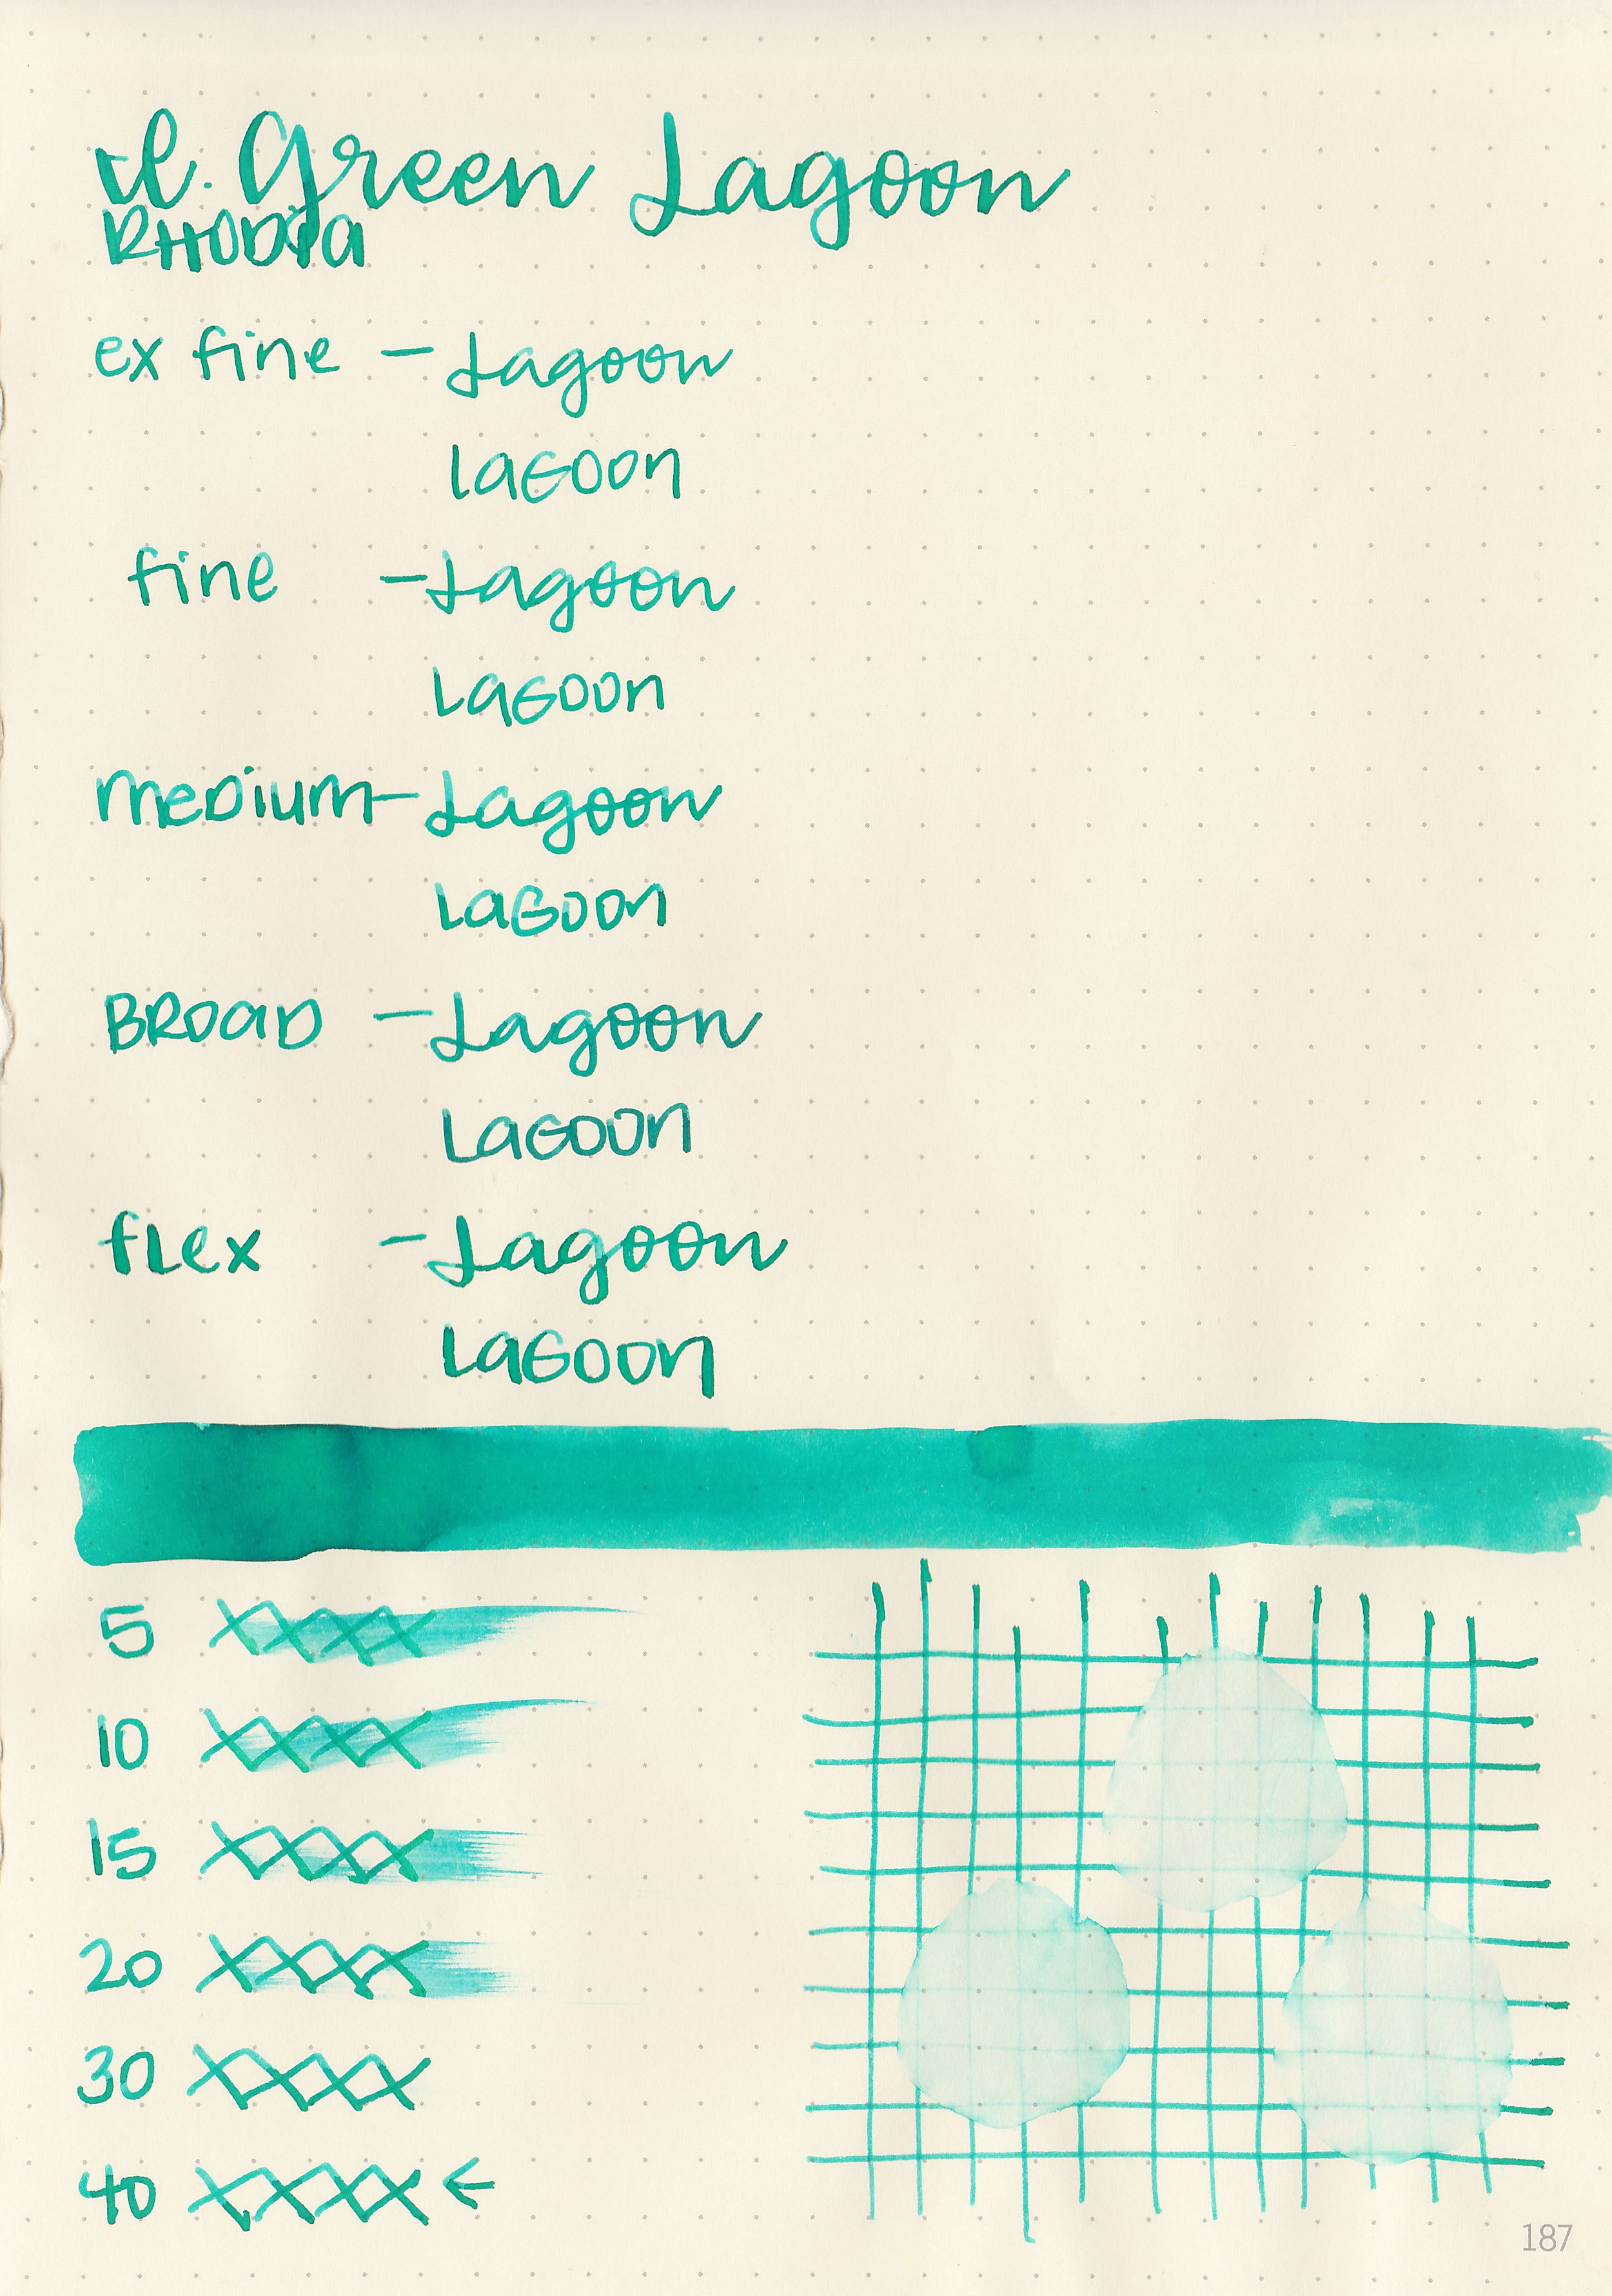 il. Green Lagoon
RHODIA
ex fine - Lagoon
LAGOON
fine - Lagoon
LAGOON
medium - Lagoon
LAGOON
BROAD - Lagoon
LAGOON
flex - Lagoon
LAGOON
5 XXXX
10 XXXX
15 XXXX
20 XXXX
30 XXXX
40 XXXX ←
187